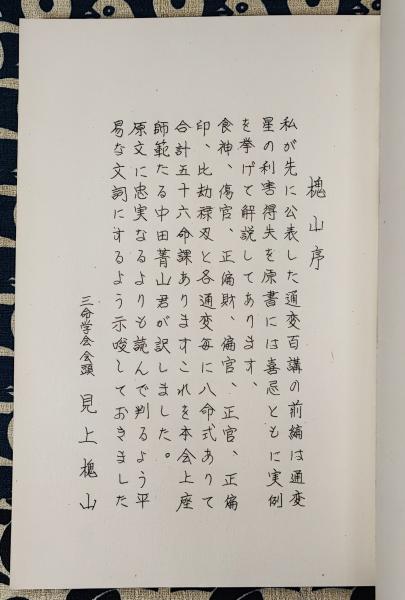 槐山序
私が先に公表した通変百講の前編は通変
星の利害得失を原書には喜忌ともに実例
を挙げて解説してあります、
食神、傷官、正偏財、偏官、正官、正偏
印、比劫禄刃と各通変毎に八命式ありて
合計五十六命課ありますこれを本会上座
師範たる中田菁山君が訳しました。
原文に忠実なるよりも読んで判るよう平
易な文詞にするよう示唆しておきました
三命学会会頭 見上槐山